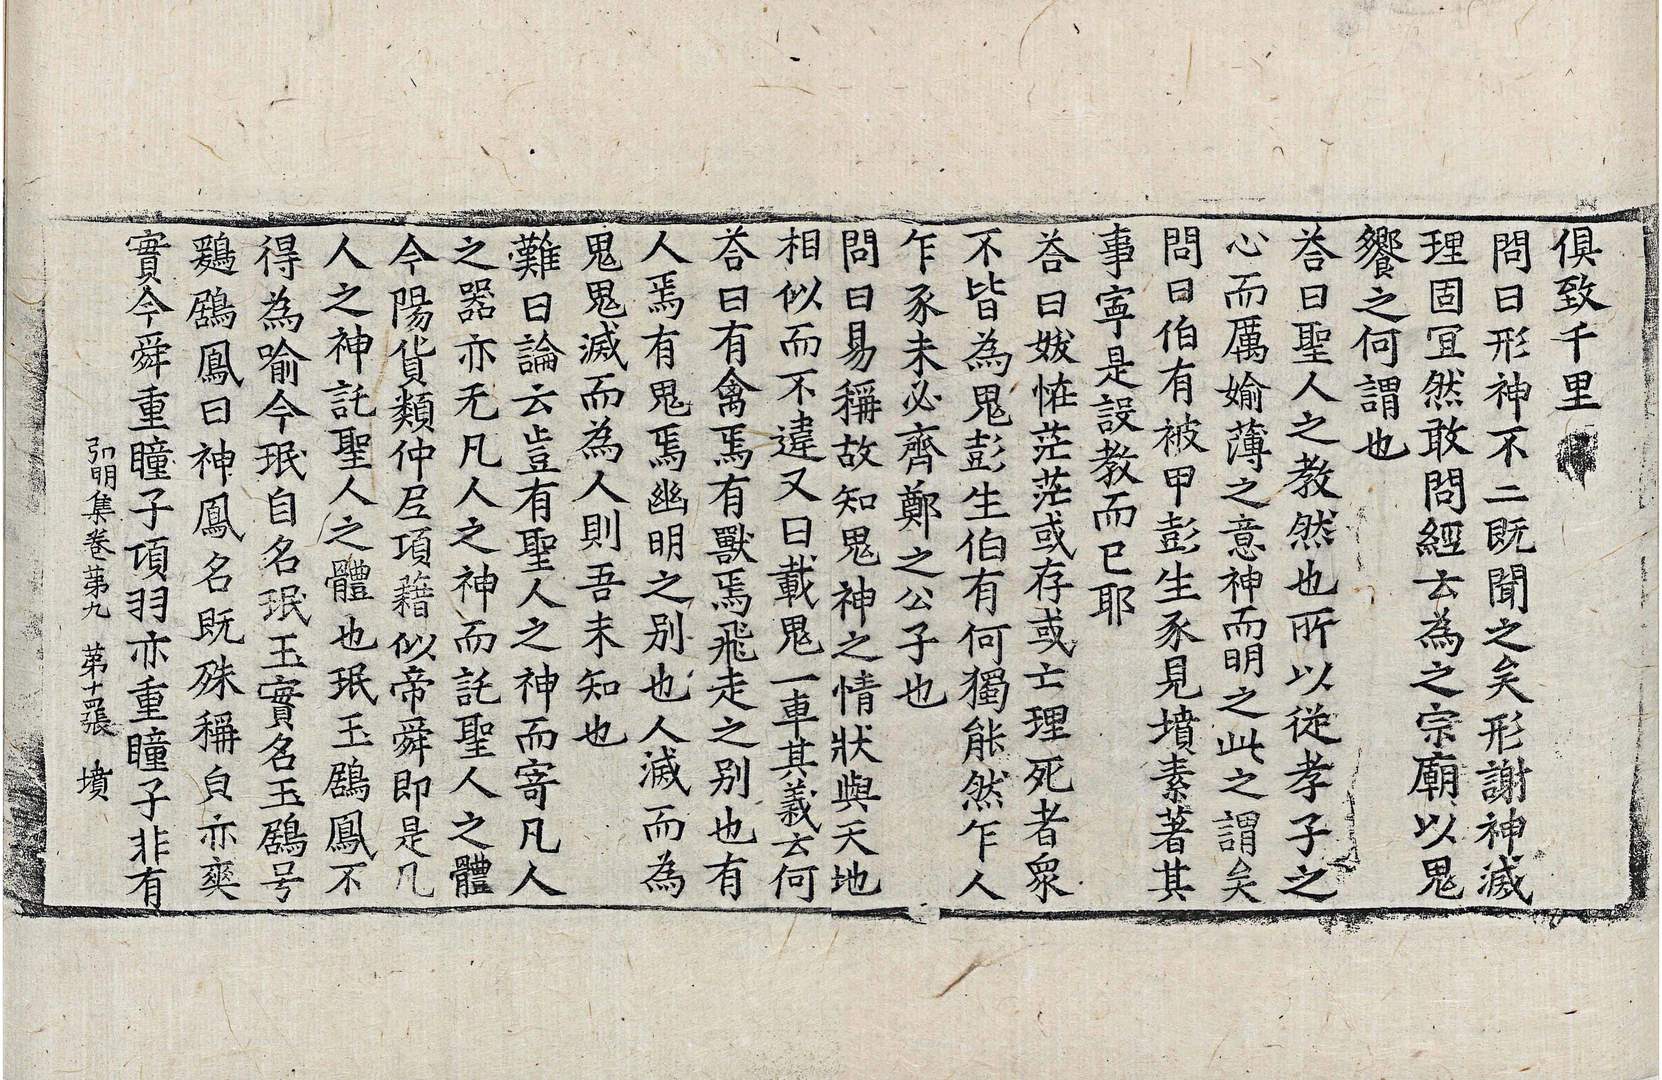 俱致千里
問曰形神不二既聞之矣形謝神滅
理固冝然敢問經云為之宗廟以鬼
饗之何謂也
荅曰聖人之教然也所以從孝子之
心而厲媮薄之意神而明之此之謂矣
問曰伯有被甲彭生豕見墳素著其
事寧是設教而已耶
荅曰妖恠茫茫或存或亡理死者衆
不皆為鬼彭生伯有何獨能然乍人
乍豕未必齊鄭之公子也
問曰易稱故知鬼神之情狀與天地
相似而不違又曰載鬼一車其義云何
荅曰有禽焉有獸焉飛走之别也有
人焉有鬼焉幽明之别也人滅而為
鬼鬼滅而為人則吾未知也
難曰論云豈有聖人之神而寄凡人
之器亦无凡人之神而託聖人之體
今陽貨類仲𡰱項藉似帝舜即是凡
人之神託聖人之體也珉玉鶹鳳不
得為喻今珉自名珉玉實名玉鶹号
鶏鶹鳳曰神鳳名既殊稱皃亦爽
實今舜重瞳子項羽亦重瞳子非有
弘明集卷苐九　苐十四張　墳